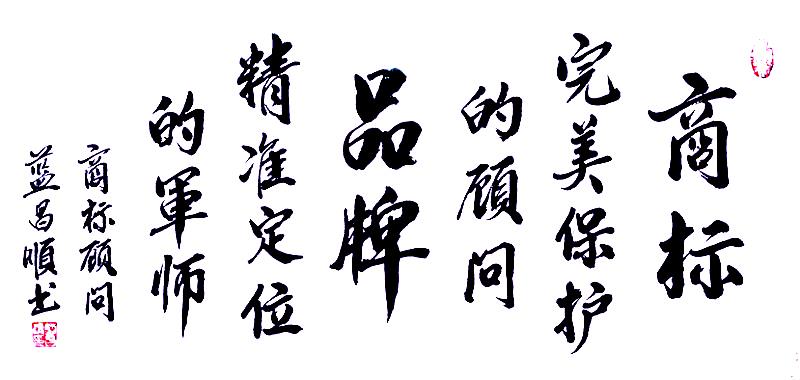 商标
完美保护
的顾问
品牌
精准定位
的軍师
商标顾问
蓝昌順书